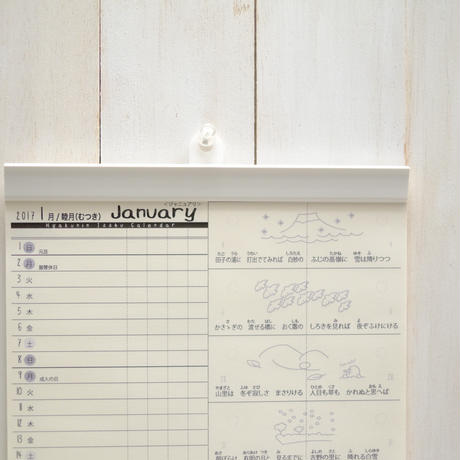 2017 1月/睦月(むつき) January
<ジャニュアリ>
Hyakunin Isshu Calendar
1 日 元旦
2 月 振替休日
3 火
4 水
5 木
6 金
7 土
8 日
9 月 成人の日
10 火
11 水
12 木
13 金
14 土
田子の浦に 打出でてみれば 白妙の ふじの高嶺に 雪は降りつつ
かささぎの 渡せる橋に おく霜の しろきを見れば 夜ぞふけにける
山里は 冬ぞ寂しさ まさりける 人目も草も かれぬと思へば
朝ぼらけ 有明の月と 見るまでに 吉野の里に 降れる白雪